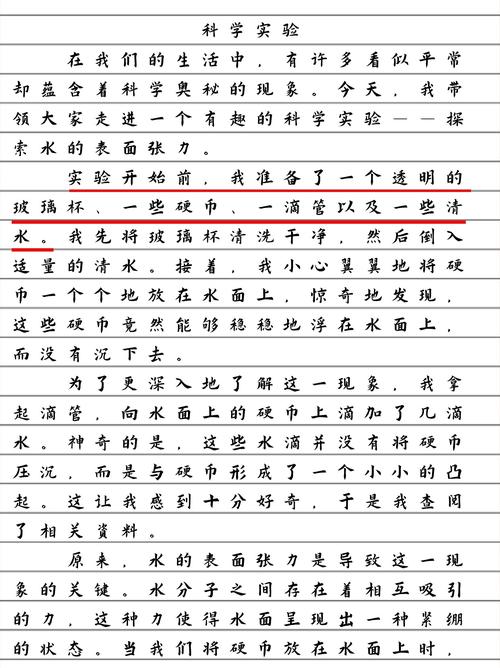 科学实验
在我们的生活中，有许多看似平常
却蕴含着科学奥秘的现象。今天，我带
领大家走进一个有趣的科学实验——探
索水的表面张力。
实验开始前，我准备了一个透明的
玻璃杯、一些硬币、一滴管以及一些清
水。我先将玻璃杯清洗干净，然后倒入
适量的清水。接着，我小心翼翼地将硬
币一个个地放在水面上，惊奇地发现，
这些硬币竟然能够稳稳地浮在水面上，
而没有沉下去。
为了更深入地了解这一现象，我拿
起滴管，向水面上的硬币上滴加了几滴
水。神奇的是，这些水滴并没有将硬币
压沉，而是与硬币形成了一个小小的凸
起。这让我感到十分好奇，于是我查阅
了相关资料。
原来，水的表面张力是导致这一现
象的关键。水分子之间存在着相互吸引
的力，这种力使得水面呈现出一种紧绷
的状态。当我们将硬币放在水面上时，